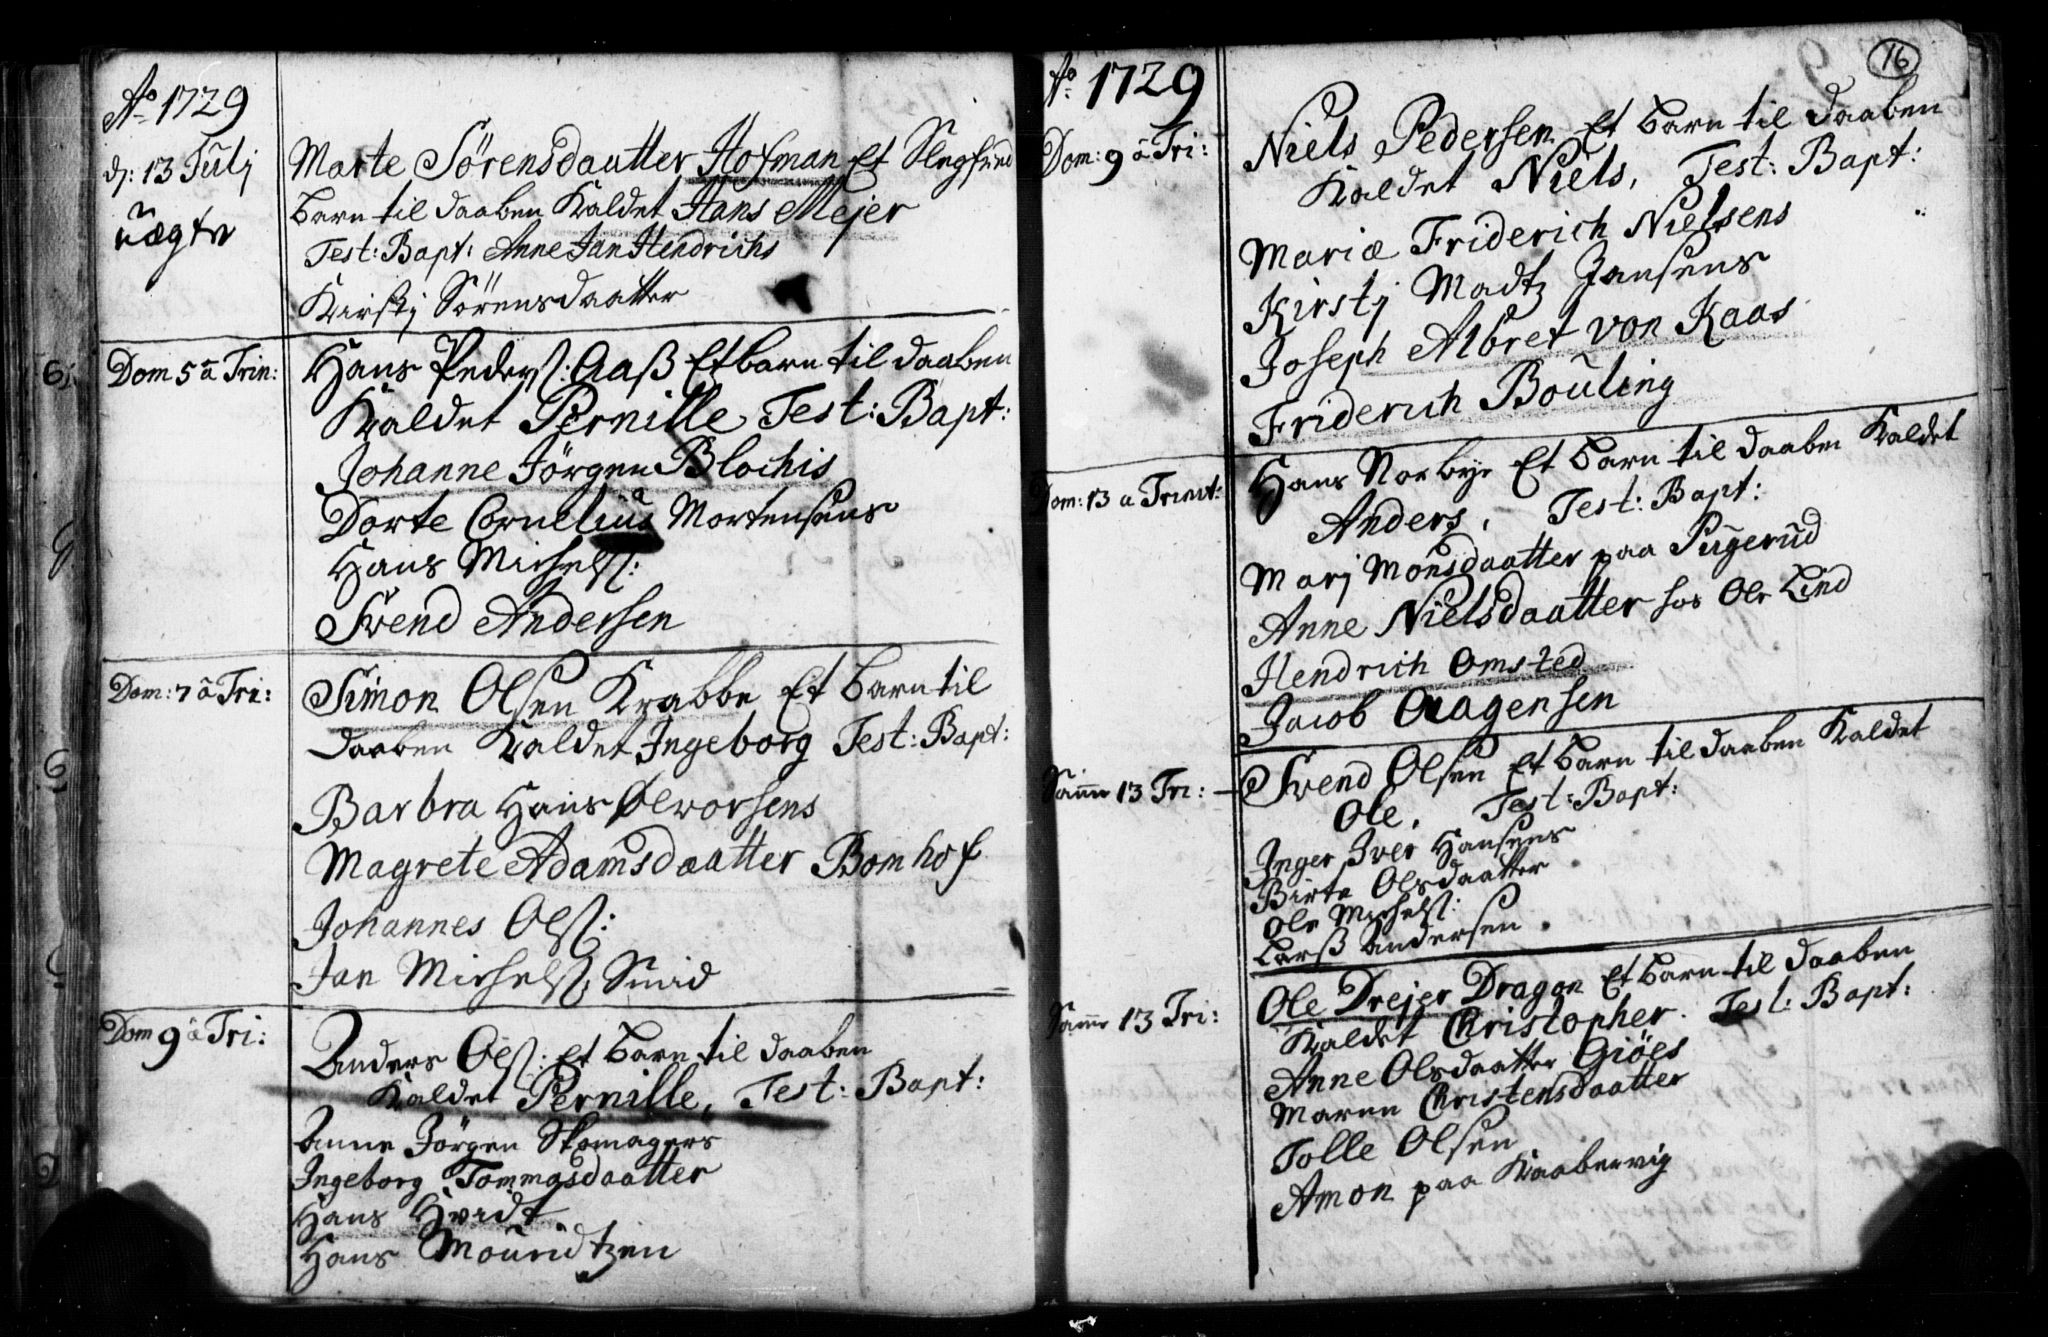 Ao 1729
d: 13 Julj
uægte
Marte Sörensdaatter Hofman Et Slegfred
barn til daaben Kaldet Hans Mejer
Test: Bapt: Anne Jan Hendrichs
Kirstj Sörensdaatter
Dom 5 a Trin:
Hans Peders: Aaß Et barn til daaben
Kaldet Pernille, Test: Bapt:
Johanne Jörgen Blochis
Dorte Cornelius Mortensens
Hans Michels:
Svend Andersen
Dom: 7 a Tri:
Simon Olsen Krabbe Et barn til
daaben Kaldet Ingeborg Test: Bapt:
Barbra Hans Ølvorsens
Magrete Adamsdaatter Bomhof
Johannes Ols:
Jan Michels: Smid
Dom 9 a Tri:
Anders Ols: Et barn til daaben
Kaldet Pernille, Test: Bapt:
Anne Jörgen Skomagers
Ingeborg Tommasdaatter
Hans Hvidt
Hans Mouridtzen
16
Ao 1729
Dom: 9 a Tri:
Niels Pedersen Et barn til daaben
Kaldet Niels, Test: Bapt:
Mariæ Friderich Nielsens
Kirstj Madtz Jansens
Joseph Albret von Kaas
Friderich Bouling
Dom: 13 a Trinit:
Hans Norbye Et barn til daaben Kaldet
Anders, Test: Bapt:
Marj Monsdaatter paa Pugerud
Anne Nielsdaatter hos Ole Lind
Hendrich Omsted
Jacob Aagensen
Samme 13 Tri:
Svend Olsen Et barn til daaben Kaldet
Ole, Test: Bapt:
Inger Iver Hansens
Birte Olsdaatter
Ole Michels:
Larß Andersen
Samme 13 Tri:
Ole Drejer Dragon Et barn til daaben
Kaldet Christopher. Test: Bapt:
Anne Olsdaatter Giöes
Maren Christensdaatter
Tolle Olsen
Amon paa Kaabervig